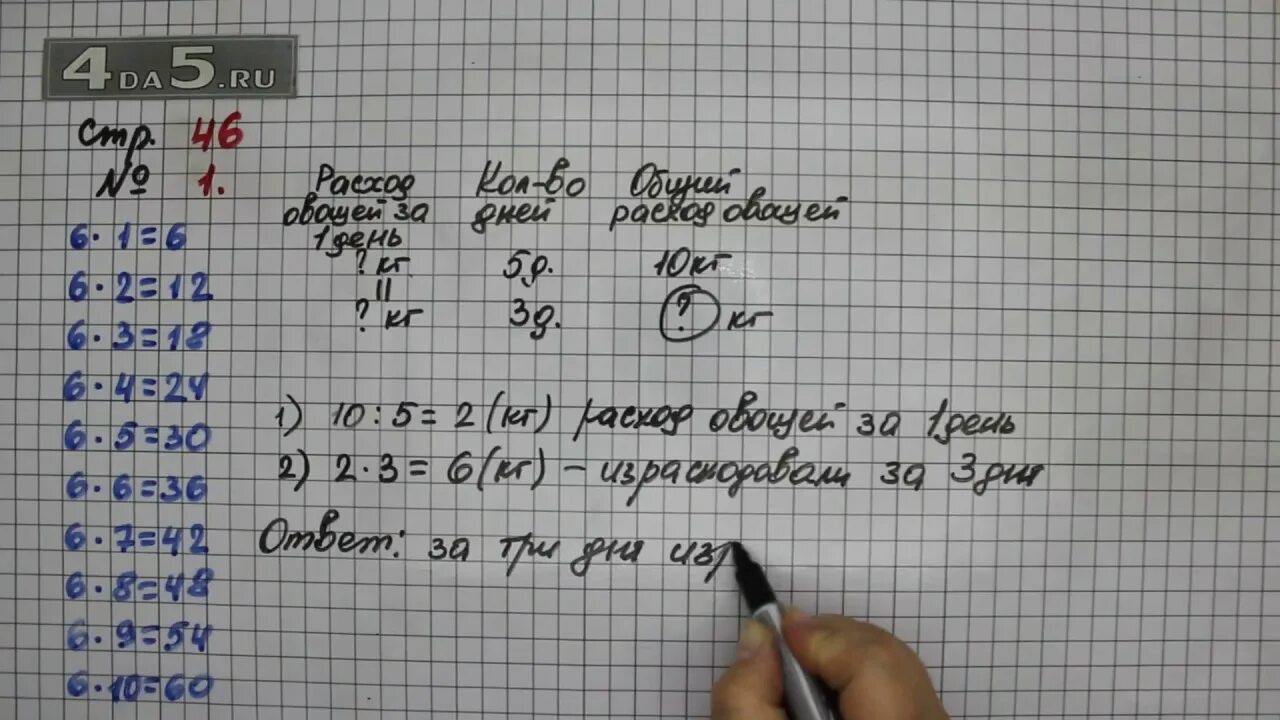 4DA5.RU
Стр. 46
№ 1.
6·1=6
6·2=12
6·3=18
6·4=24
6·5=30
6·6=36
6·7=42
6·8=48
6·9=54
6·10=60
Расход Кол-во Общий
овощей за дней расход овощей
1 день
? кг 5д. 10кг
||
? кг 3д. ? кг
1) 10:5=2(кг) расход овощей за 1день
2) 2·3=6(кг) – израсходовали за 3дня
Ответ: за три дня изр